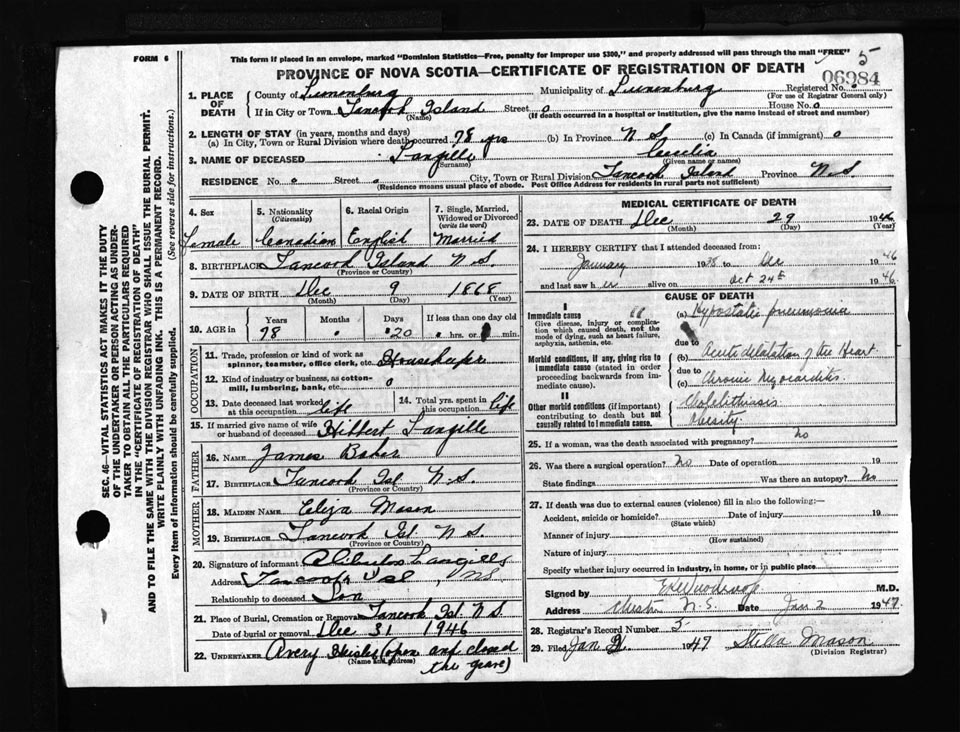 FORM 6
This form if placed in an envelope, marked "Dominion Statistics—Free, penalty for improper use $300," and properly addressed will pass through the mail "FREE"
5
PROVINCE OF NOVA SCOTIA—CERTIFICATE OF REGISTRATION OF DEATH
06984
1. PLACE OF DEATH
County of Lunenburg Municipality of Lunenburg Registered No.
(For use of Registrar General only)
If in City or Town Tancook Island Street o House No. o
(Name) (If death occurred in a hospital or institution, give the name instead of street and number)
2. LENGTH OF STAY (in years, months and days)
(a) In City, Town or Rural Division where death occurred 78 yrs (b) In Province N S (c) In Canada (if immigrant) o
3. NAME OF DECEASED Langille Cecelia
Surname (Given name or names)
RESIDENCE No. o Street o City, Town or Rural Division Tancook Island Province N.S.
(Residence means usual place of abode. Post Office Address for residents in rural parts not sufficient)
4. Sex Female
5. Nationality (Citizenship) Canadian
6. Racial Origin English
7. Single, Married, Widowed or Divorced (write the word) Married
8. BIRTHPLACE Tancook Island N.S.
(Province or Country)
9. DATE OF BIRTH Dec 9 1868
(Month) (Day) (Year)
10. AGE in Years 78 Months Days 20 If less than one day hrs. or min.
OCCUPATION
11. Trade, profession or kind of work as spinner, teamster, office clerk, etc.
12. Kind of industry or business, as cotton-mill, lumbering, bank, etc. o
13. Date deceased last worked at this occupation life
14. Total yrs. spent in this occupation life
15. If married give name of wife or husband of deceased Hibbert Langille
FATHER
16. NAME James Baker
17. BIRTHPLACE Tancook Isl N.S.
(Province or Country)
MOTHER
18. MAIDEN NAME Eliza Mason
19. BIRTHPLACE Tancook Isl N S.
(Province or Country)
20. Signature of informant Langille
Address Tancook Isl, NS
Relationship to deceased Son
21. Place of Burial, Cremation or Removal Tancook Isl. N.S.
Date of burial or removal Dec 31 1946
22. UNDERTAKER Avery (open and closed
(Name and address) the grave)
MEDICAL CERTIFICATE OF DEATH
23. DATE OF DEATH Dec 29 1946
(Month) (Day) (Year)
24. I HEREBY CERTIFY that I attended deceased from:
January 1938 to Dec 1946
and last saw her alive on Oct 24th 1946
CAUSE OF DEATH
I
Immediate cause
Give disease, injury or complication which caused death, not the mode of dying, such as heart failure, asphyxia, asthenia, etc.
(a) Hypostatic pneumonia
due to
Morbid conditions, if any, giving rise to immediate cause (stated in order proceeding backwards from immediate cause).
(b) Acute dilatation of the Heart
due to
(c) Chronic Myocarditis.
II
Other morbid conditions (if important) contributing to death but not causally related to immediate cause.
Cholelithiasis
Obesity
25. If a woman, was the death associated with pregnancy? No
26. Was there a surgical operation? No Date of operation 19
State findings Was there an autopsy? No
27. If death was due to external causes (violence) fill in also the following:—
Accident, suicide or homicide? Date of injury 19
(State which)
Manner of injury
(How sustained)
Nature of injury
Specify whether injury occurred in industry, in home, or in public place
Signed by M.D.
Address Chester N.S. Date Jan 2 1947
28. Registrar's Record Number 5
29. Filed Jan 1947 Stella Mason
(Division Registrar)
SEC. 46—VITAL STATISTICS ACT MAKES IT THE DUTY
OF THE UNDERTAKER OR PERSON ACTING AS UNDER-
TAKER TO OBTAIN ALL THE PARTICULARS REQUIRED
IN THE "CERTIFICATE OF REGISTRATION OF DEATH"
AND TO FILE THE SAME WITH THE DIVISION REGISTRAR WHO SHALL ISSUE THE BURIAL PERMIT.
WRITE PLAINLY WITH UNFADING INK. THIS IS A PERMANENT RECORD.
Every item of information should be carefully supplied. (See reverse side for instructions.)